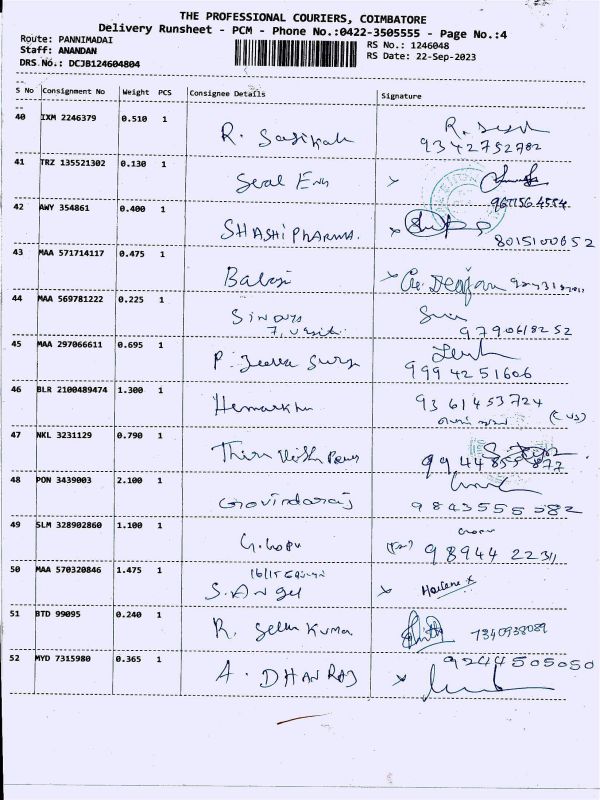 THE PROFESSIONAL COURIERS, COIMBATORE
Delivery Runsheet - PCM - Phone No.:0422-3505555 - Page No.:4
Route: PANNIMADAI
Staff: ANANDAN
DRS No.: DCJB124604804
RS No.: 1246048
RS Date: 22-Sep-2023
S No Consignment No Weight PCS Consignee Details Signature
40 IXM 2246379 0.510 1 R.
9342752782
41 TRZ 135521302 0.130 1 Seal Eng
42 AWY 354861 0.400 1 SHASHI PHARMA.
8015100652
43 MAA 571714117 0.475 1 Balaji
44 MAA 569781222 0.225 1 SINDHU
9790618252
45 MAA 297066611 0.695 1 P. Jeeva Surya
9994251606
46 BLR 2100489474 1.300 1 9361453724
47 NKL 3231129 0.790 1
9944855877
48 PON 3439003 2.100 1 Govindaraj
9843555582
49 SLM 328902860 1.100 1 G. Gopu
98944 22311
50 MAA 570320846 1.475 1 S. Angel
51 BTD 99095 0.240 1 R. Selva Kumar 7340938089
52 MYD 7315980 0.365 1 A. DHANRAJ 9244505050